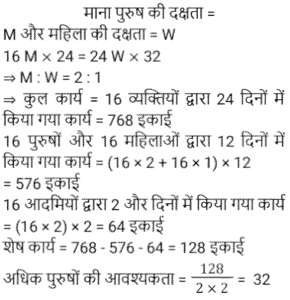 माना पुरुष की दक्षता =
M और महिला की दक्षता = W
16 M × 24 = 24 W × 32
⇒ M : W = 2 : 1
⇒ कुल कार्य = 16 व्यक्तियों द्वारा 24 दिनों में
किया गया कार्य = 768 इकाई
16 पुरुषों और 16 महिलाओं द्वारा 12 दिनों में
किया गया कार्य = (16 × 2 + 16 × 1) × 12
= 576 इकाई
16 आदमियों द्वारा 2 और दिनों में किया गया कार्य
= (16 × 2) × 2 = 64 इकाई
शेष कार्य = 768 - 576 - 64 = 128 इकाई
अधिक पुरुषों की आवश्यकता = 128 / 2 × 2 = 32